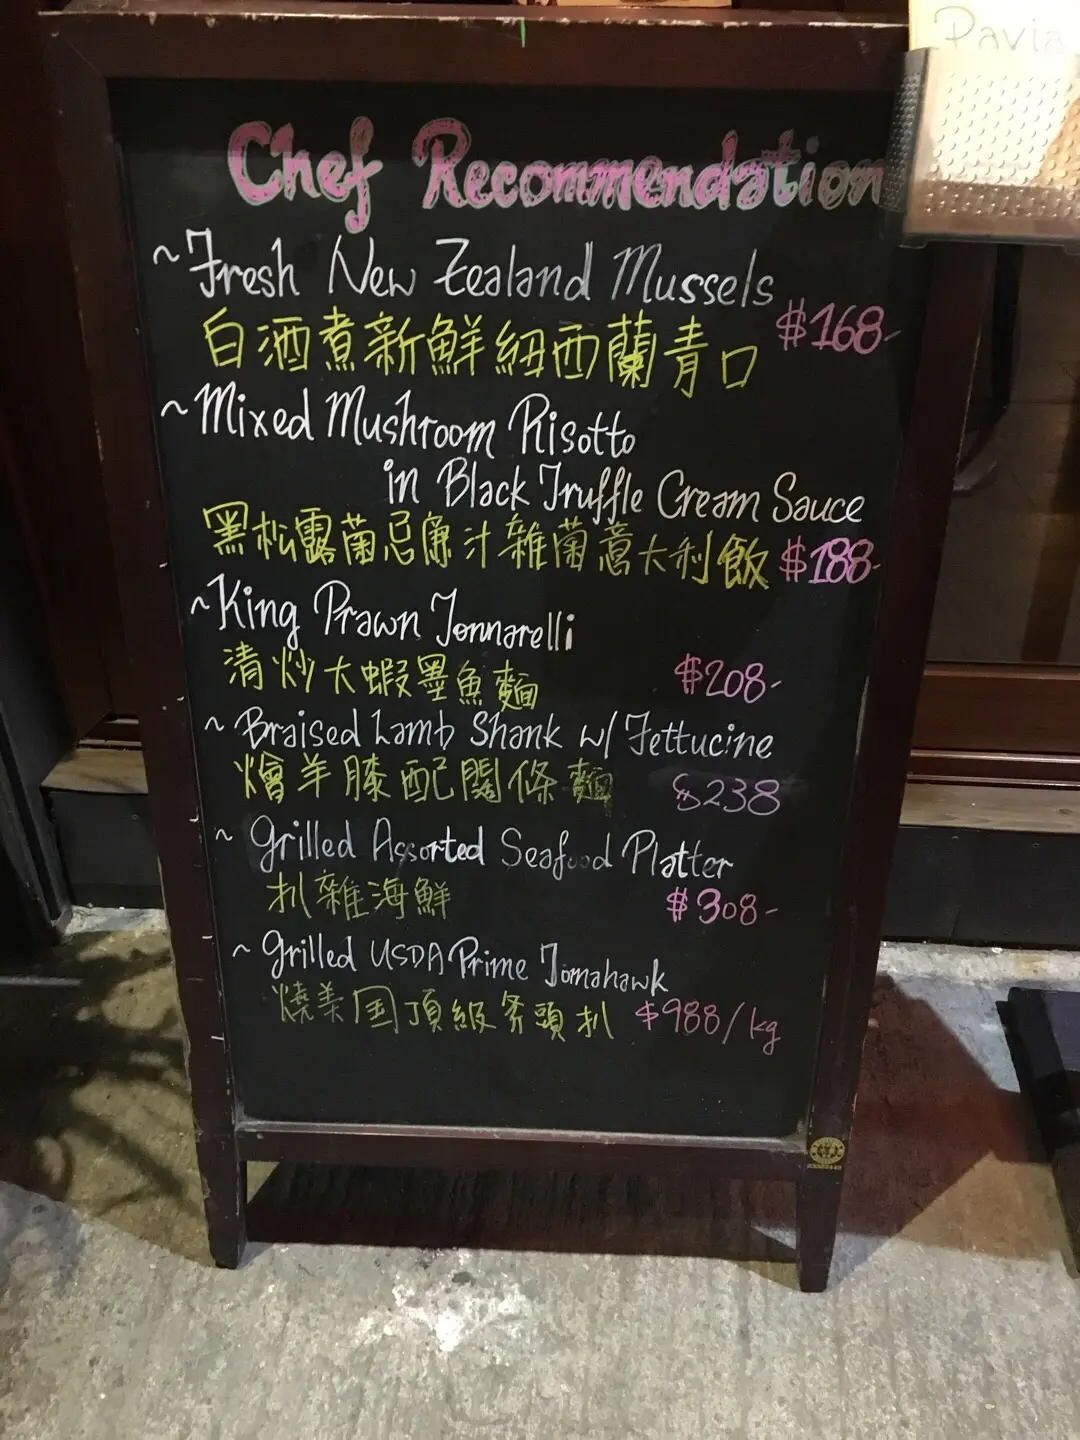 Pavia
Chef Recommendation
~Fresh New Zealand Mussels
白酒煮新鮮紐西蘭青口 $168-
~Mixed Mushroom Risotto
in Black Truffle Cream Sauce
黑松露菌忌廉汁雜菌意大利飯 $188-
~King Prawn Tonnarelli
清炒大蝦墨魚麵 $208-
~Braised Lamb Shank w/ Fettucine
燴羊膝配闊條麵 $238
~Grilled Assorted Seafood Platter
扒雜海鮮 $308-
~Grilled USDA Prime Tomahawk
燒美国頂級斧頭扒 $988/kg